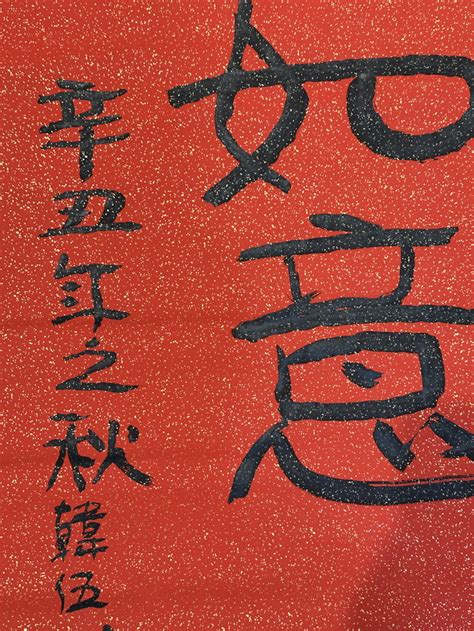 如意
辛丑年之秋韓伍